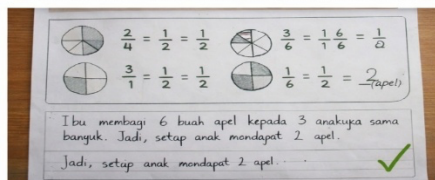 2/4 = 1/2 = 1/2
3/6 = 1/1 6/6 = 1/2
3/1 = 1/2 = 1/2
1/6 = 1/2 = 2 (apel)
Ibu membagi 6 buah apel kepada 3 anakuja sama
banyuk. Jadi, setap anak mondapat 2 apel.
Jadi, setiap anak mondapat 2 apel.